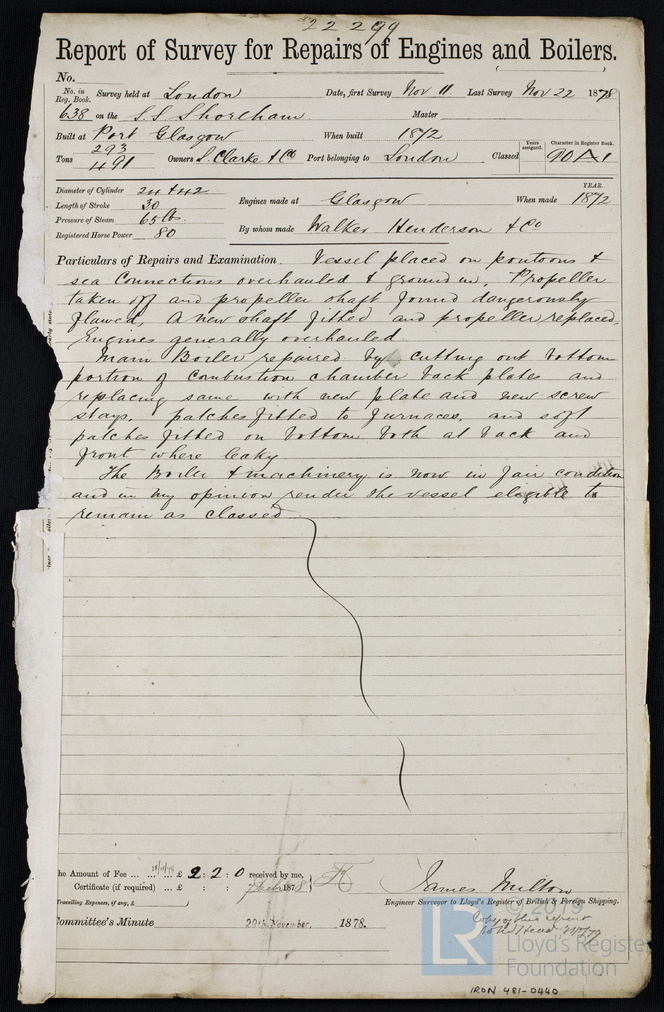 22299
Report of Survey for Repairs of Engines and Boilers.
No.
No. in Reg. Book. Survey held at London Date, first Survey Nov 11 Last Survey Nov 22 1878
638 on the S.S. Shoreham Master
Built at Port Glasgow When built 1872 Years assigned. Character in Register Book.
Tons 293 491 Owners S. Clarke & Co Port belonging to London Classed 90 A 1
Diameter of Cylinder 24 & 42 YEAR.
Length of Stroke 30 Engines made at Glasgow When made 1872
Pressure of Steam 65 lbs
Registered Horse Power 80 By whom made Walker Henderson & Co
Particulars of Repairs and Examination. Vessel placed on pontoons &
sea connections overhauled & ground in, Propeller
taken off and propeller shaft found dangerously
flawed, A new shaft fitted and propeller replaced,
Engines generally overhauled
Main Boiler repaired by cutting out bottom
portion of combustion chamber back plates and
replacing same with new plate and new screw
stays, patches fitted to furnaces, and soft
patches fitted on bottom both at back and
front where leaky
The Boiler & machinery is now in fair condition
and in my opinion render the vessel eligible to
remain as classed
he Amount of Fee ... ... ... £ 2 : 2 : 0 received by me,
Certificate (if required) ... £ : : 1878
Travelling Expenses, if any, £
James Milton
Engineer Surveyor to Lloyd's Register of British & Foreign Shipping.
Committee's Minute 29th November, 1878.
Copy of this report
© 2019
LR Lloyd's Register
Foundation
IRON 481-0440